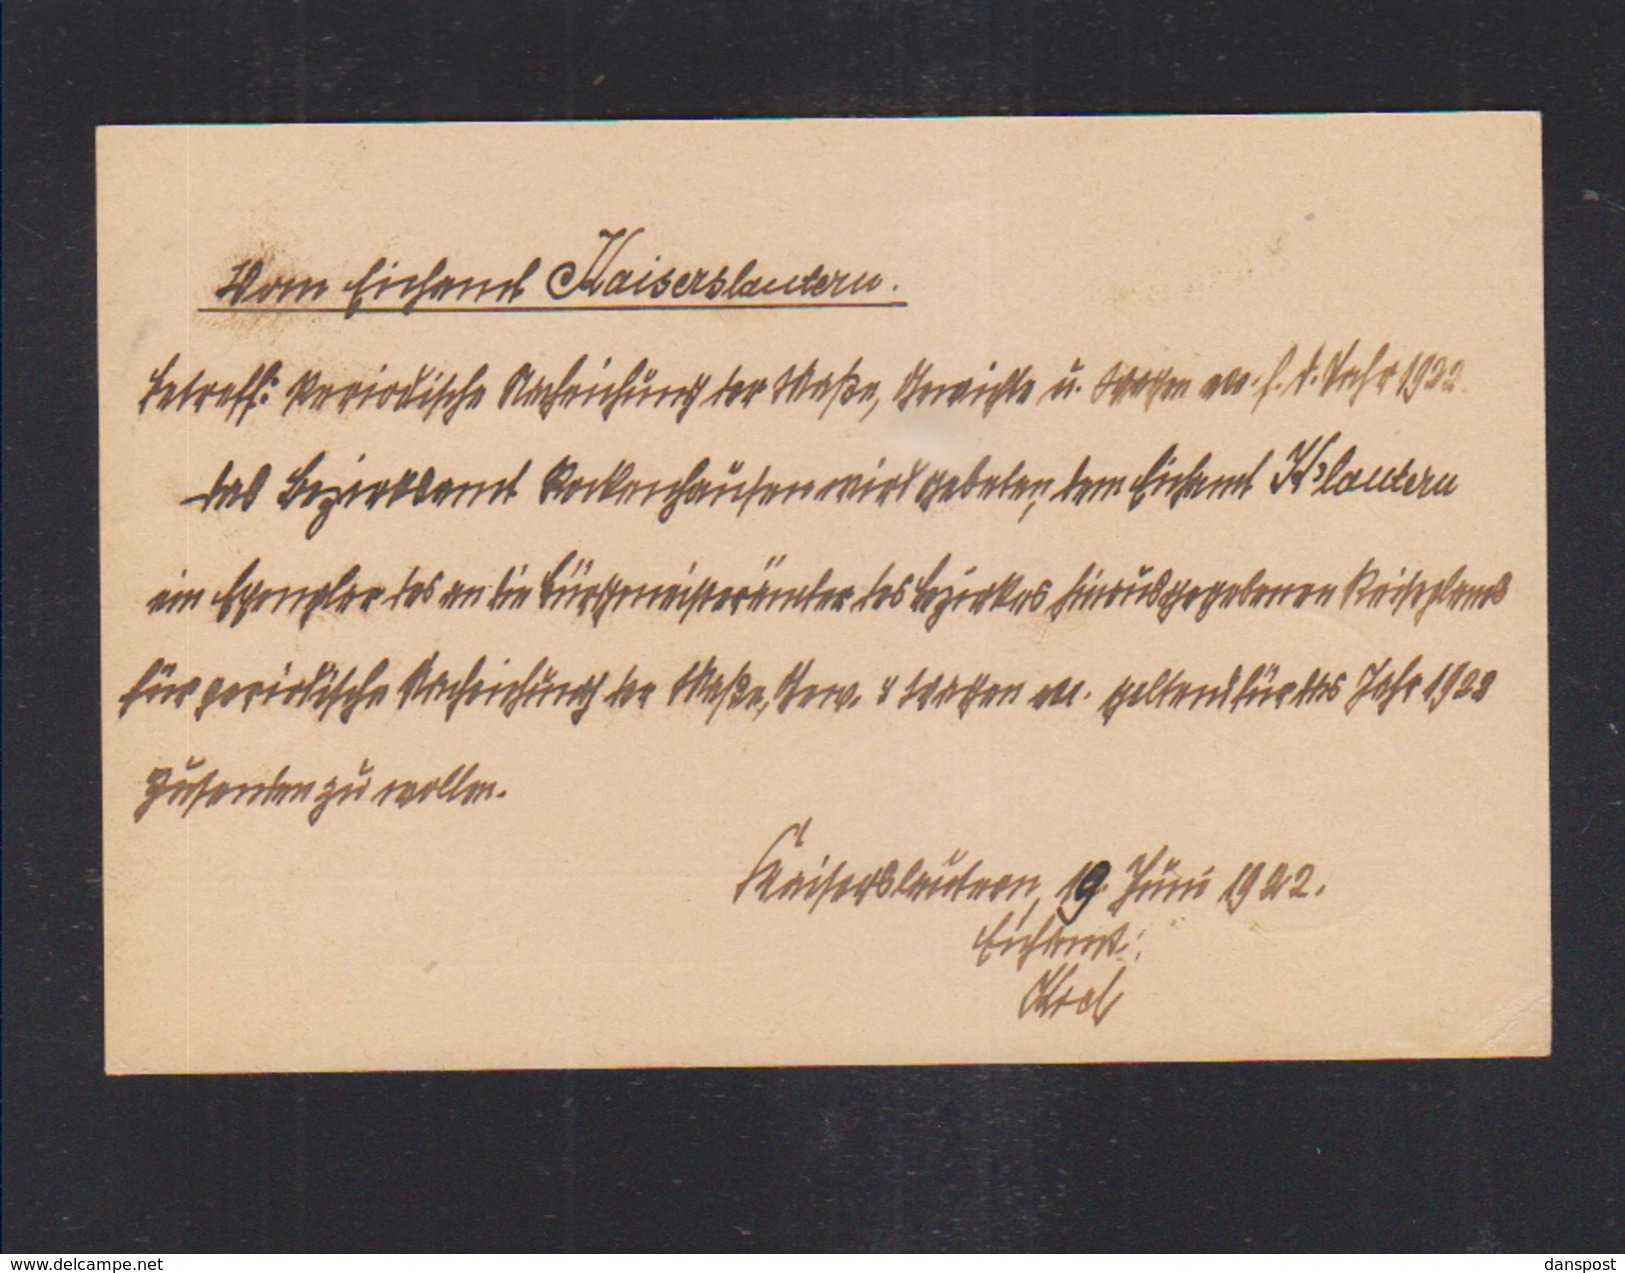 Vom Eichamt Kaiserslautern.
Betreff: Periodische Nacheichung der Maße, Gewichte u. Wagen pp. f. d. Jahr 1922
Das Bezirksamt Rockenhausen wird gebeten, dem Eichamt K'lautern
ein Exemplar des an die Bürgermeisterämter des Bezirkes hinausgegebenen Reiseplans
für periodische Nacheichung der Maße, Gew. & Wagen pp. geltend für das Jahr 1922
zusenden zu wollen.
Kaiserslautern, 19. Juni 1922.
Eichamt:
www.delcampe.net
danspost